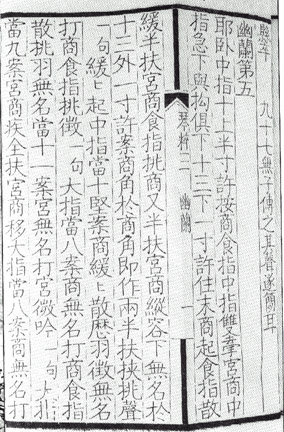 幽蘭第五
耶卧中指十上半寸許按商食指中指雙牽宮商中
指急下與拘俱下十三下一寸許住末商起食指散
琴粹二 幽蘭 一
緩半扶宮商食指挑商又半扶宮商縱容下無名於
十三外一寸許案商角於商角即作兩半扶挾挑聲
一句緩緩起中指當十案商緩緩散歷羽徵無名
打商食指挑徵一句大指當八案商無名打商食指
散挑羽無名當十一案宮無名打宮徵吟一句大指
當九案宮商疾全扶宮商移大指當八案商無名打